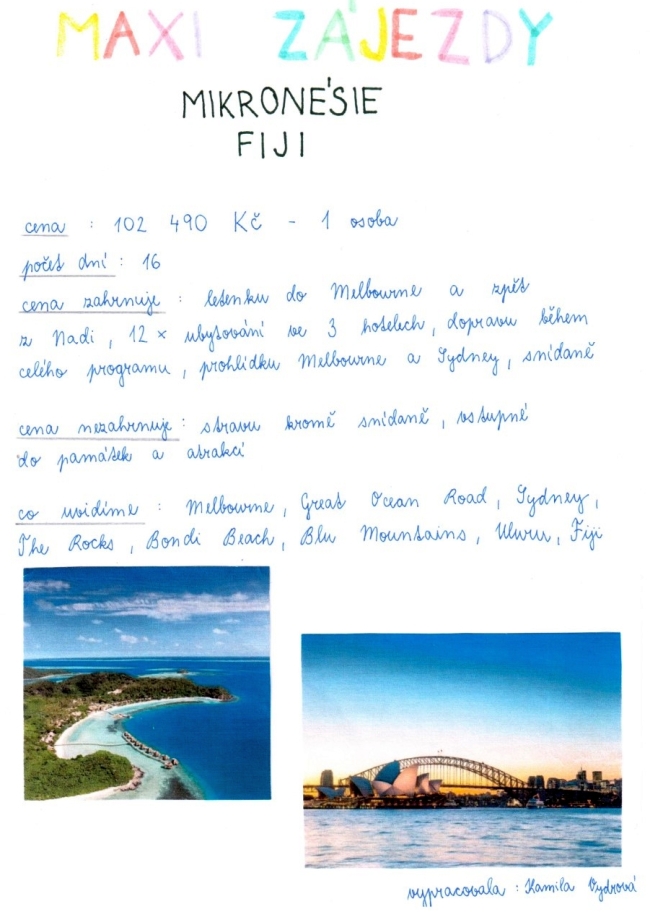 MAXI ZÁJEZDY
MIKRONÉSIE
FIJI
cena : 102 490 Kč - 1 osoba
počet dní : 16
cena zahrnuje : letenku do Melbourne a zpět
z Nadi , 12 x ubytování ve 3 hotelech , dopravu během
celého programu , prohlídku Melbourne a Sydney , snídaně
cena nezahrnuje : stravu kromě snídaně , vstupné
do památek a atrakcí
co uvidíme : Melbourne , Great Ocean Road , Sydney ,
The Rocks , Bondi Beach , Blu Mountains , Uluru , Fiji
vypracovala : Kamila Vydrová